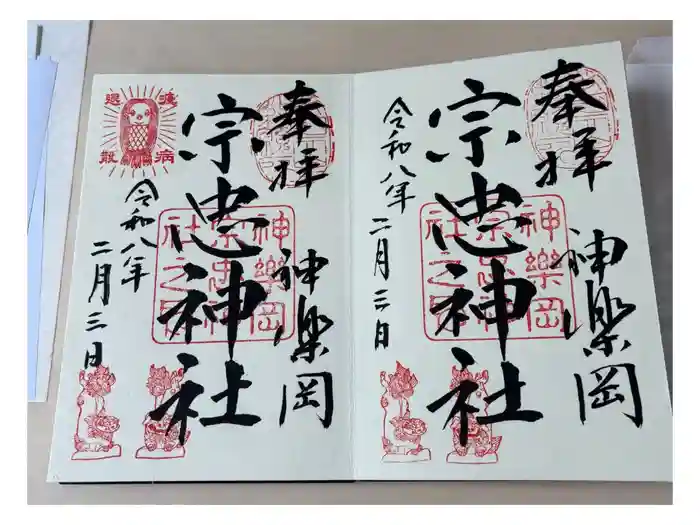 奉拝
神楽岡
宗忠神社
令和八年
二月三日
疫病
退散
神樂岡
宗忠神
社之印
奉拝
神楽岡
宗忠神社
令和八年
二月三日
神樂岡
宗忠神
社之印